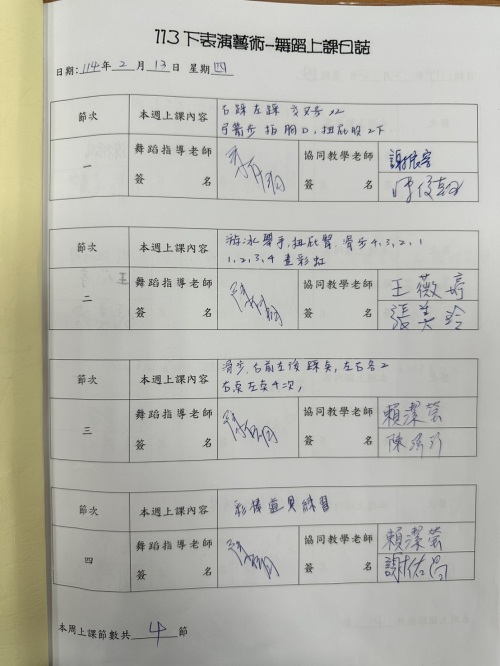 113下表演藝術-舞蹈上課日誌
日期:114年2月13日 星期四
節次 本週上課內容 右踩左踩 交叉步x2
弓箭步 拍胸口,扭屁股2下
一 舞蹈指導老師簽名 協同教學老師簽名
節次 本週上課內容 游泳舉手,扭屁臀,滑步4,3,2,1
1,2,3,4 畫彩虹
二 舞蹈指導老師簽名 協同教學老師簽名 王薇婷
張美玲
節次 本週上課內容 滑步,右前左後 踩點,左右各2
右點左點4次,
三 舞蹈指導老師簽名 協同教學老師簽名 賴潔瑩
節次 本週上課內容 彩條道具練習
四 舞蹈指導老師簽名 協同教學老師簽名 賴潔瑩
謝佑昌
本周上課節數共 4 節